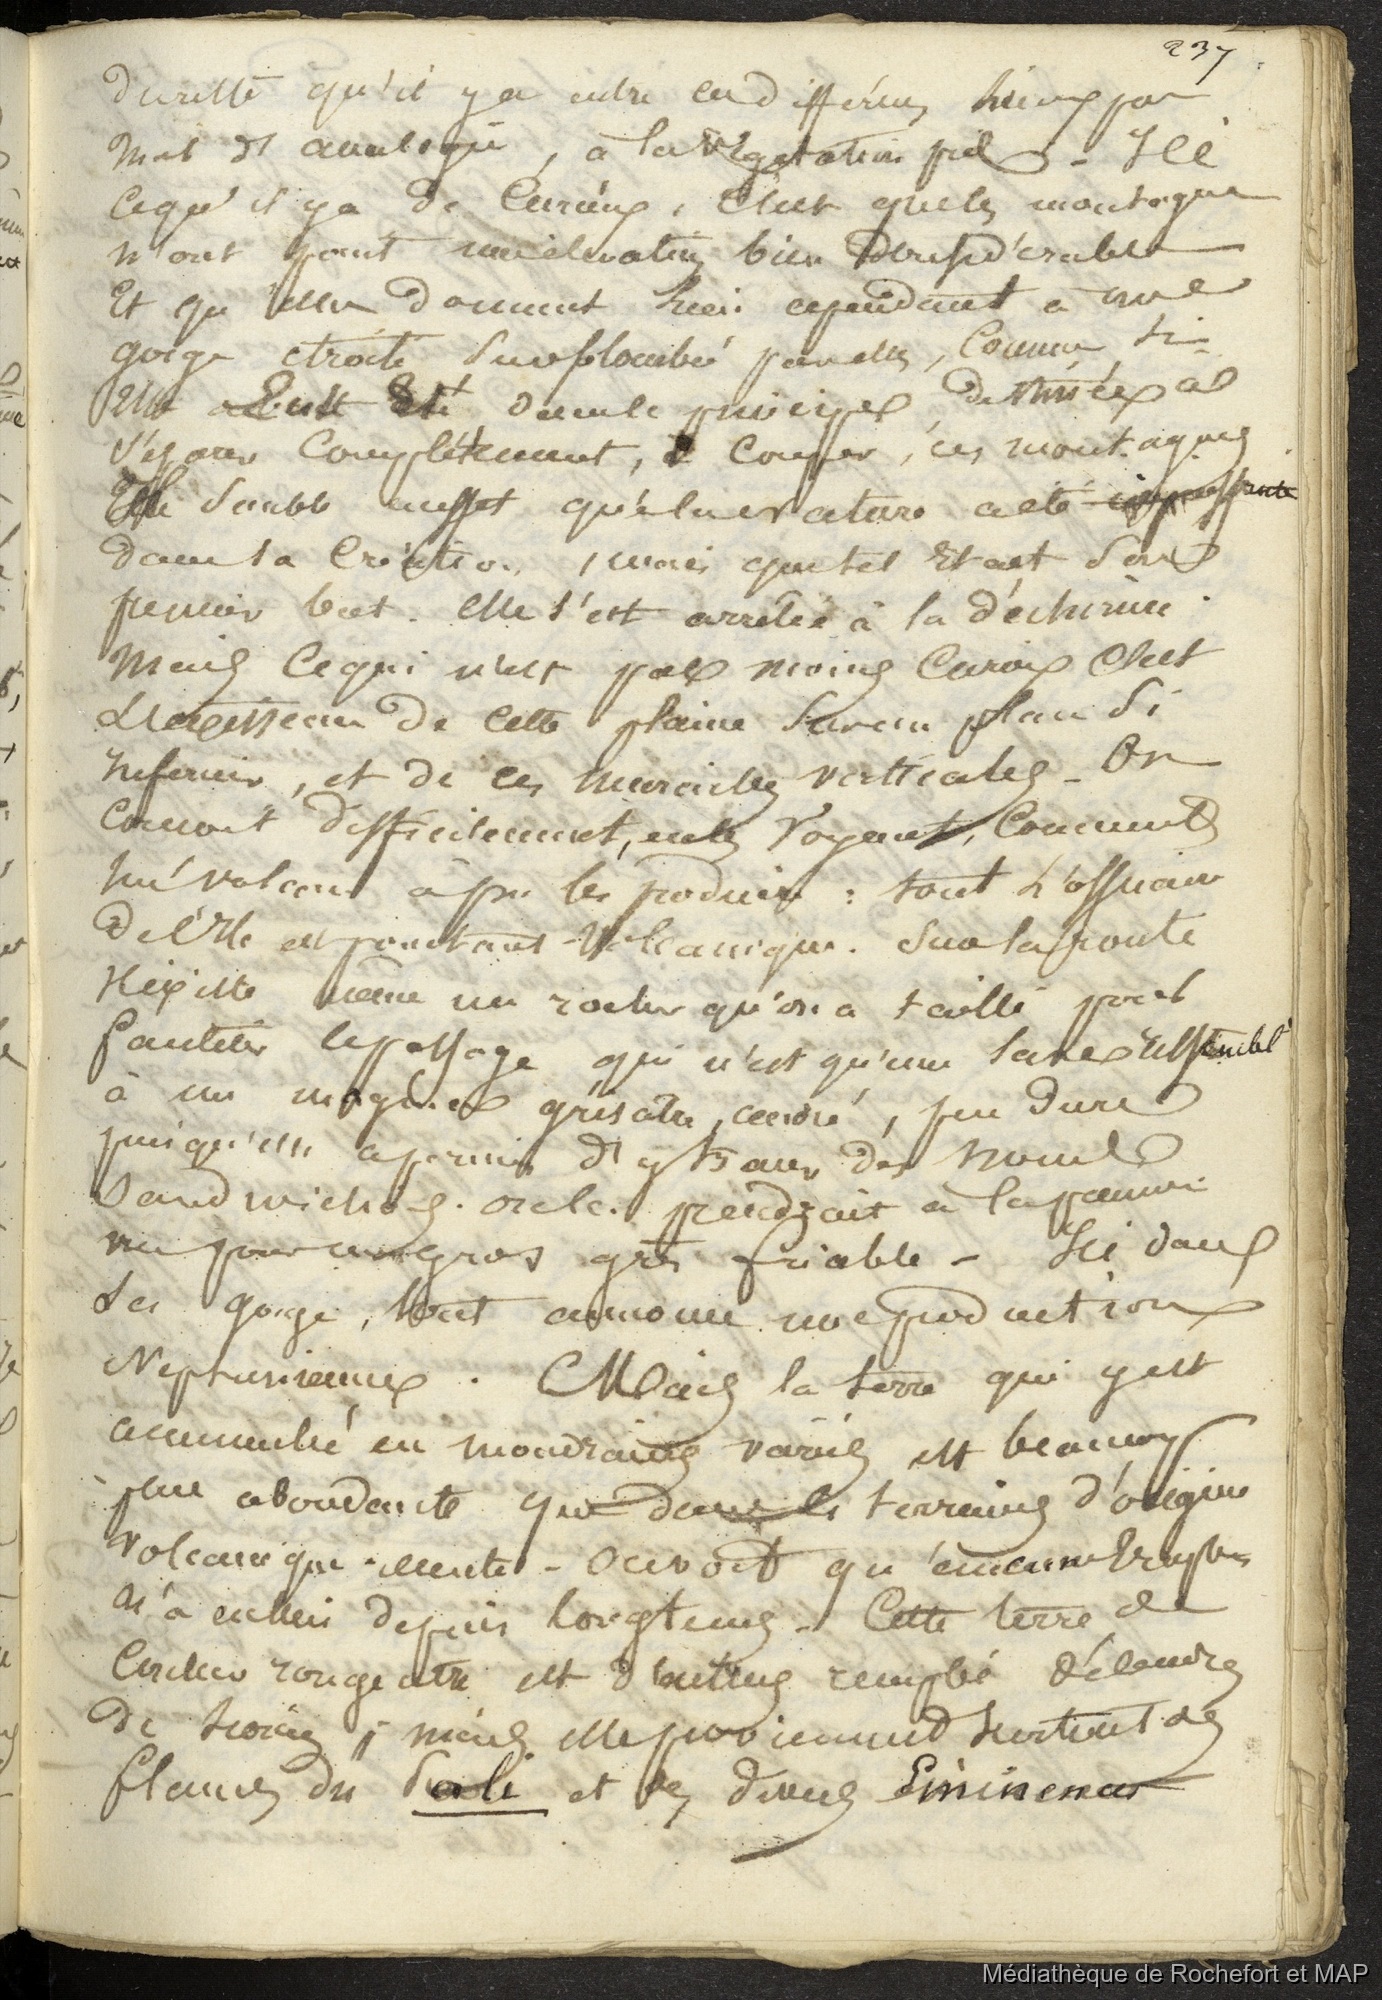 237
qu'il y a entre ces différens lieux par
mal d'analogie, à la végétation près - Ici
ce qu'il y a de curieux, c'est que les montagnes
n'ont point une élévation bien considérable
et qu'elles donnent lieu cependant à une
gorge étroite surplombée par elles, comme si
elle eut été dans le principe destinée à
séparer complétement, à couper, ces montagnes
Il semble en effet que la nature a été
dans sa création, mais que tel était son
premier but. Elle s'est arrêtée à la déchirure.
Mais ce qui n'est pas moins curieux c'est
de cette plaine sur un plan si
inferieur, et de ces murailles verticales - On
conçoit difficilement, en les voyant, comment
un volcan a pu les produire : tout l'ossuaire
de l'île est pourtant volcanique. Sur la route
il existe même un rocher qu'on a taillé pour
faciliter le passage qui n'est qu'une lave
à un grisâtre, cendré, peu dure
puisqu'elle a permis d'y tracer des noms
Sandwichois. on le prendrait à la première
vue pour un gros grès friable - Ici dans
les gorges, tout annonce une production
Neptunienne. Mais la terre qui y est
accumulée en mondrains variés est beaucoup
plus abondante que dans les terrains d'origine
volcanique récente - on voit qu'aucune éruption
n'a eu lieu depuis longtems - Cette terre de
couleur rougeâtre est d'ailleurs remplie décombres
de scories; mais elle provienne surtout des
flancs du Pali et des divers éminences